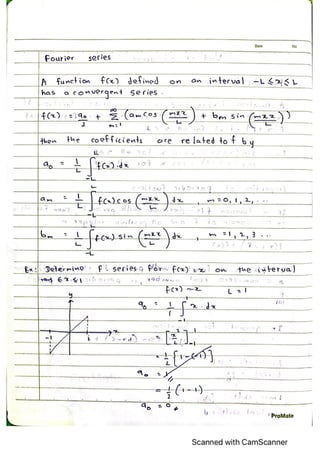 Date No
Fourier series
A function f(x) defined on an interval -L ≤ x ≤ L
has a convergent series.
f(x) = a₀/2 + Σ_{m=1}^{∞} (aₘ cos (mπx/L) + bₘ sin (mπx/L))
then the coefficients are related to f by
a₀ = 1/L ∫_{-L}^{L} f(x) dx
aₘ = 1/L ∫_{-L}^{L} f(x) cos (mπx/L) dx , m = 0, 1, 2, ...
bₘ = 1/L ∫_{-L}^{L} f(x) sin (mπx/L) dx , m = 1, 2, 3 ...
Ex: Determine F. series for f(x) = x on the interval
-1 ≤ x ≤ 1
f(x) = x L = 1
y
x
-1
1
a₀ = 1/1 ∫_{-1}^{1} x dx
= [x²/2]_{-1}^{1}
= 1/2 [1 - (-1)]
a₀ = 1
= 1/2 (1 - 1)
a₀ = 0
ProMate
Scanned with CamScanner